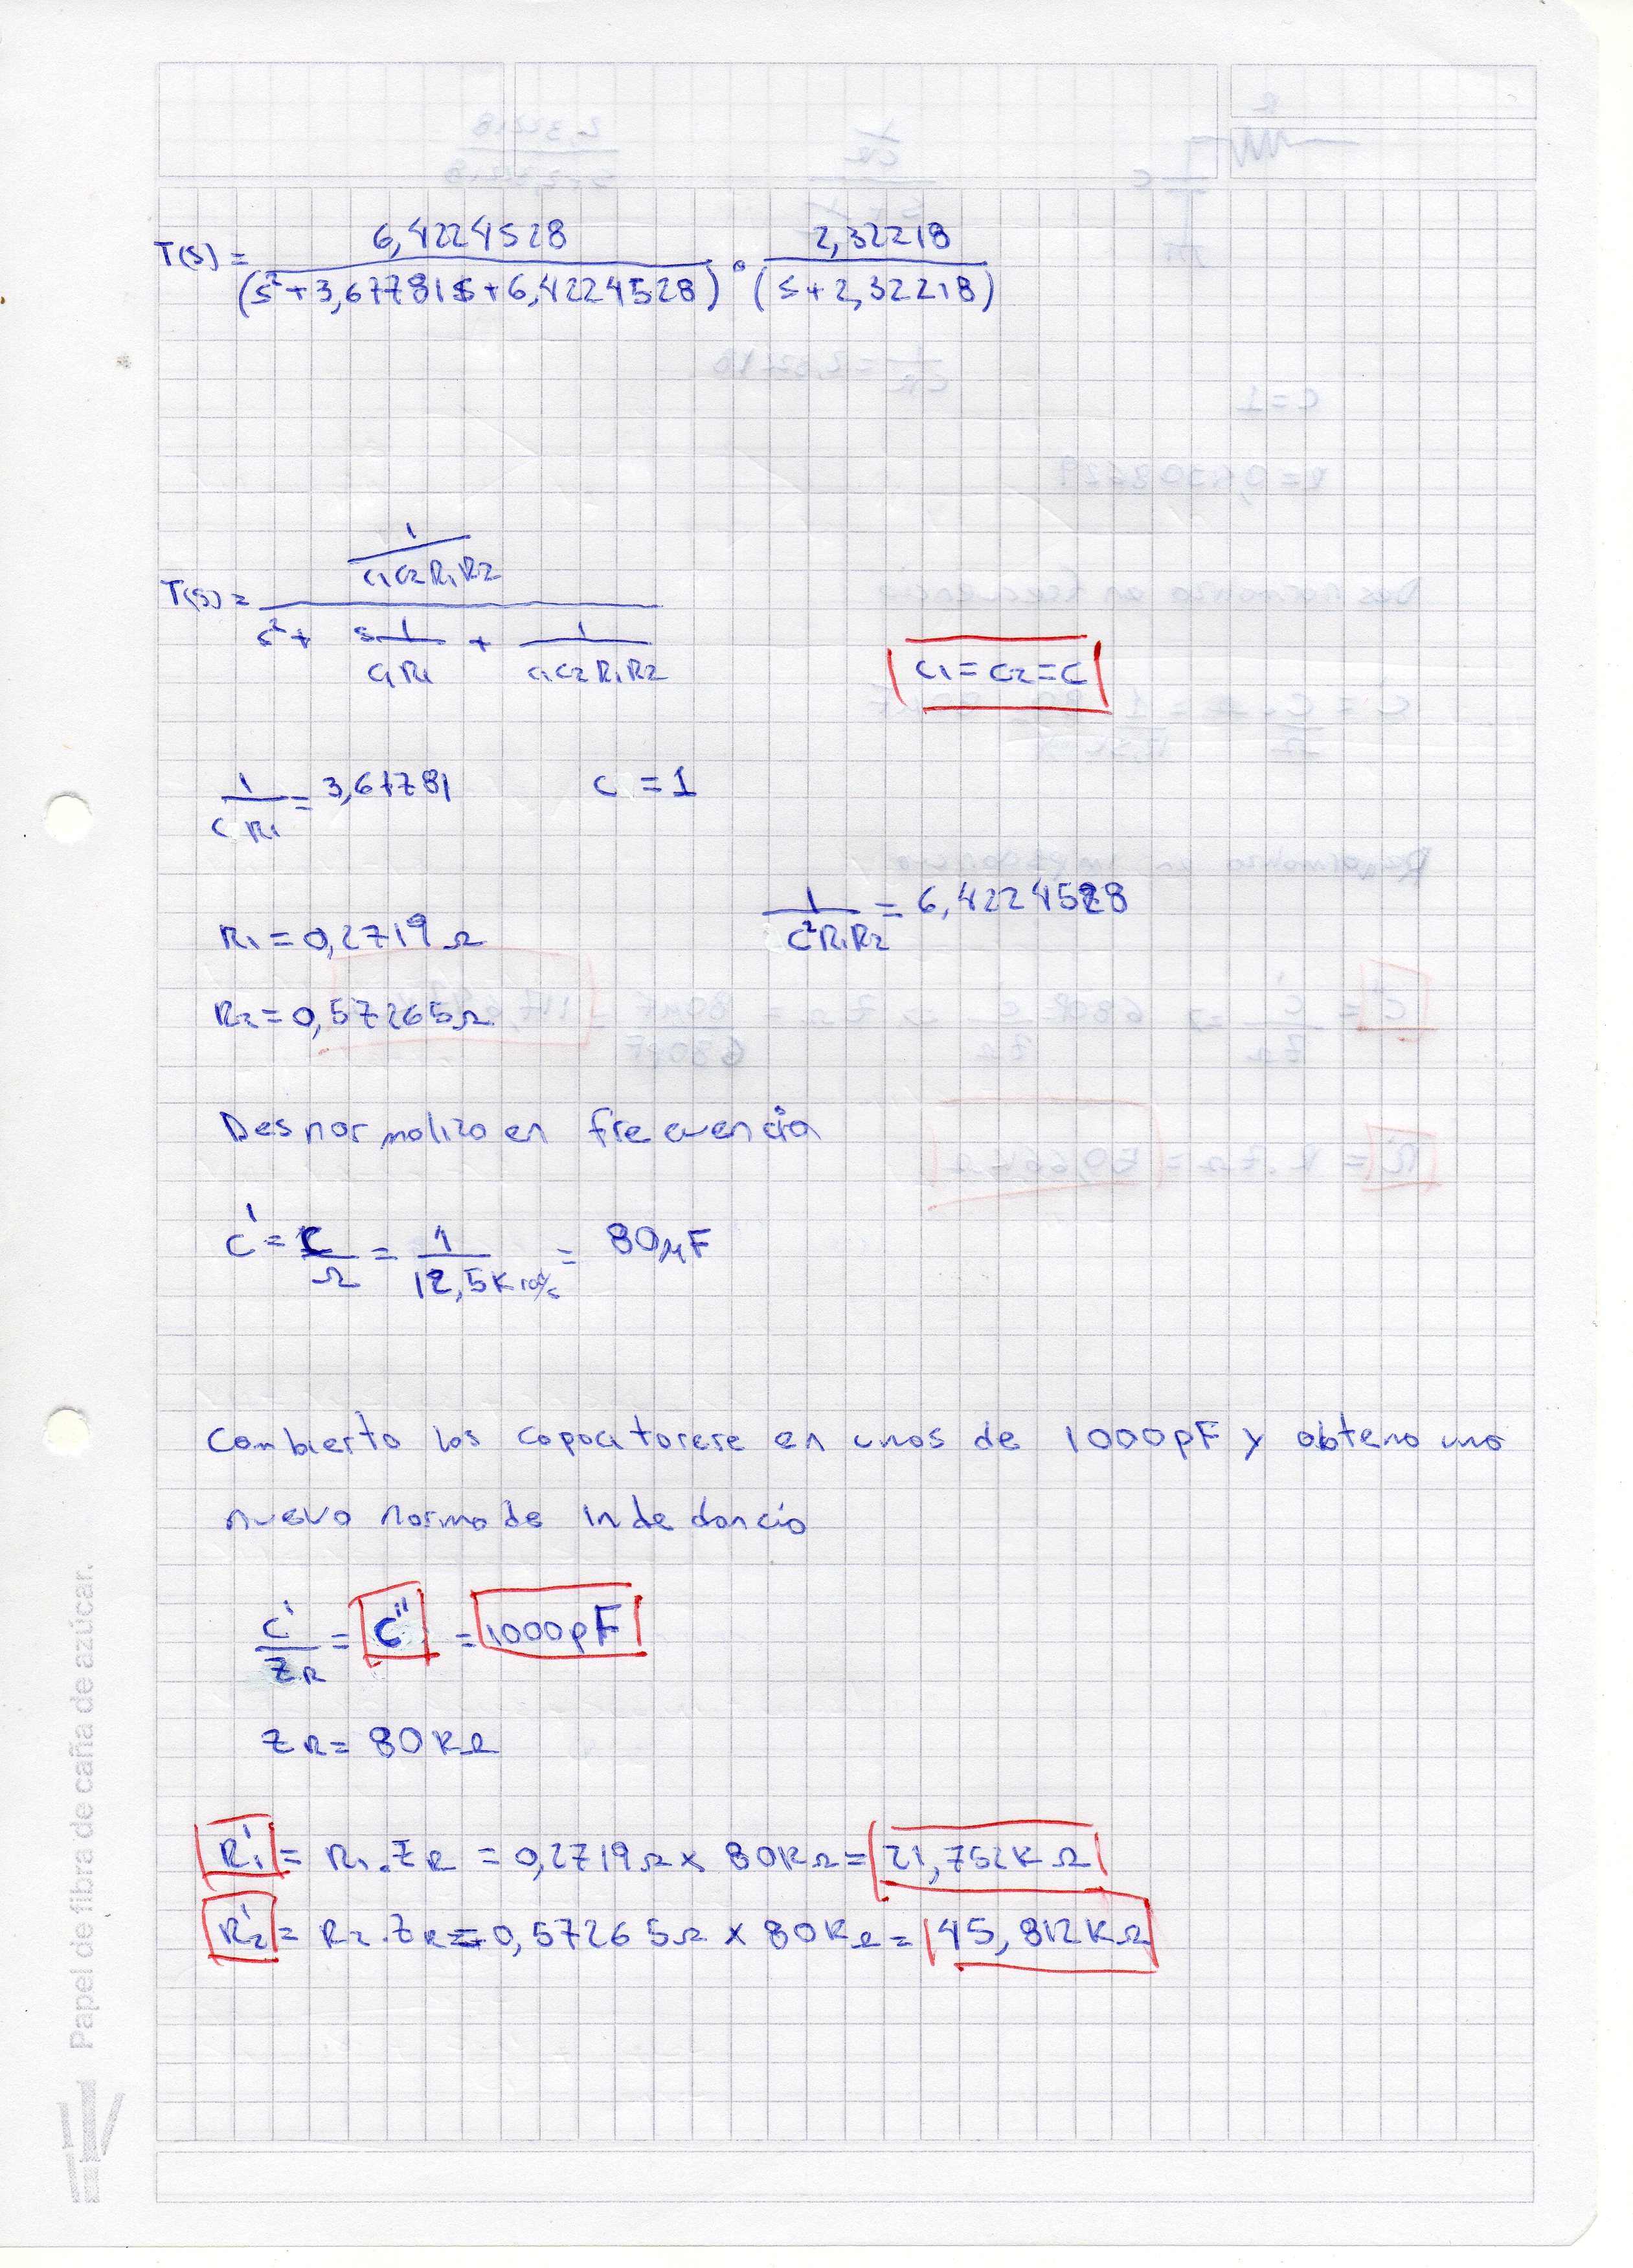 T(s) = 6,4224528 / (s² + 3,67781s + 6,4224528) · 2,32218 / (s + 2,32218)
T(s) = (1 / C1C2R1R2) / (s² + s 1/C1R1 + 1/C1C2R1R2)
C1 = C2 = C
1/CR1 = 3,67781 C = 1
1/C²R1R2 = 6,4224528
R1 = 0,2719Ω
R2 = 0,57265Ω
Desnormalizo en frecuencia
C' = C/Ω = 1/12,5K rad/s = 80μF
Combierto los capacitorese en unos de 1000pF y obteno una
nueva norma de indedancia
C'/ZR = C'' = 1000pF
ZR = 80KΩ
R1' = R1.ZR = 0,2719Ω x 80KΩ = 21,752KΩ
R2' = R2.ZR = 0,57265Ω x 80KΩ = 45,812KΩ
Papel de fibra de caña de azúcar.